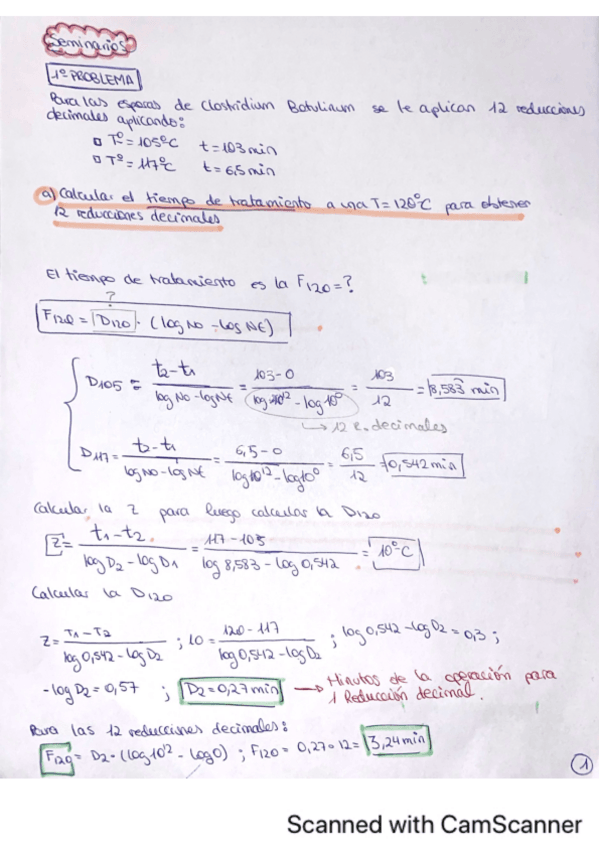 Seminarios
1º PROBLEMA
Para las esporas de Clostridium Botulinum se le aplican 12 reducciones
decimales aplicando:
Tº = 105ºC t = 103 min
Tº = 117ºC t = 6,5 min
a) Calcular el tiempo de tratamiento a una T = 120ºC para obtener
12 reducciones decimales
El tiempo de tratamiento es la F120 = ?
?
F120 = D120 · (log N0 - log Nt)
D105 = t2-t1 / log N0 - log Nt = 103-0 / log 10^12 - log 10^0 = 103 / 12 = 8,583 min
→ 12 r. decimales
D117 = t2-t1 / log N0 - log Nt = 6,5-0 / log 10^12 - log 10^0 = 6,5 / 12 = 0,542 min
Calcular la Z para luego calcular la D120
Z = t1-t2 / log D2 - log D1 = 117-105 / log 8,583 - log 0,542 = 10ºC
Calcular la D120
Z = T1-T2 / log 0,542 - log D2 ; 10 = 120-117 / log 0,542 - log D2 ; log 0,542 - log D2 = 0,3 ;
- log D2 = 0,57 ; D2 = 0,27 min → Minutos de la operación para
1 Reducción decimal.
Para las 12 reducciones decimales:
F120 = D2 · (log 10^12 - log 0) ; F120 = 0,27 · 12 = 3,24 min
1
Scanned with CamScanner